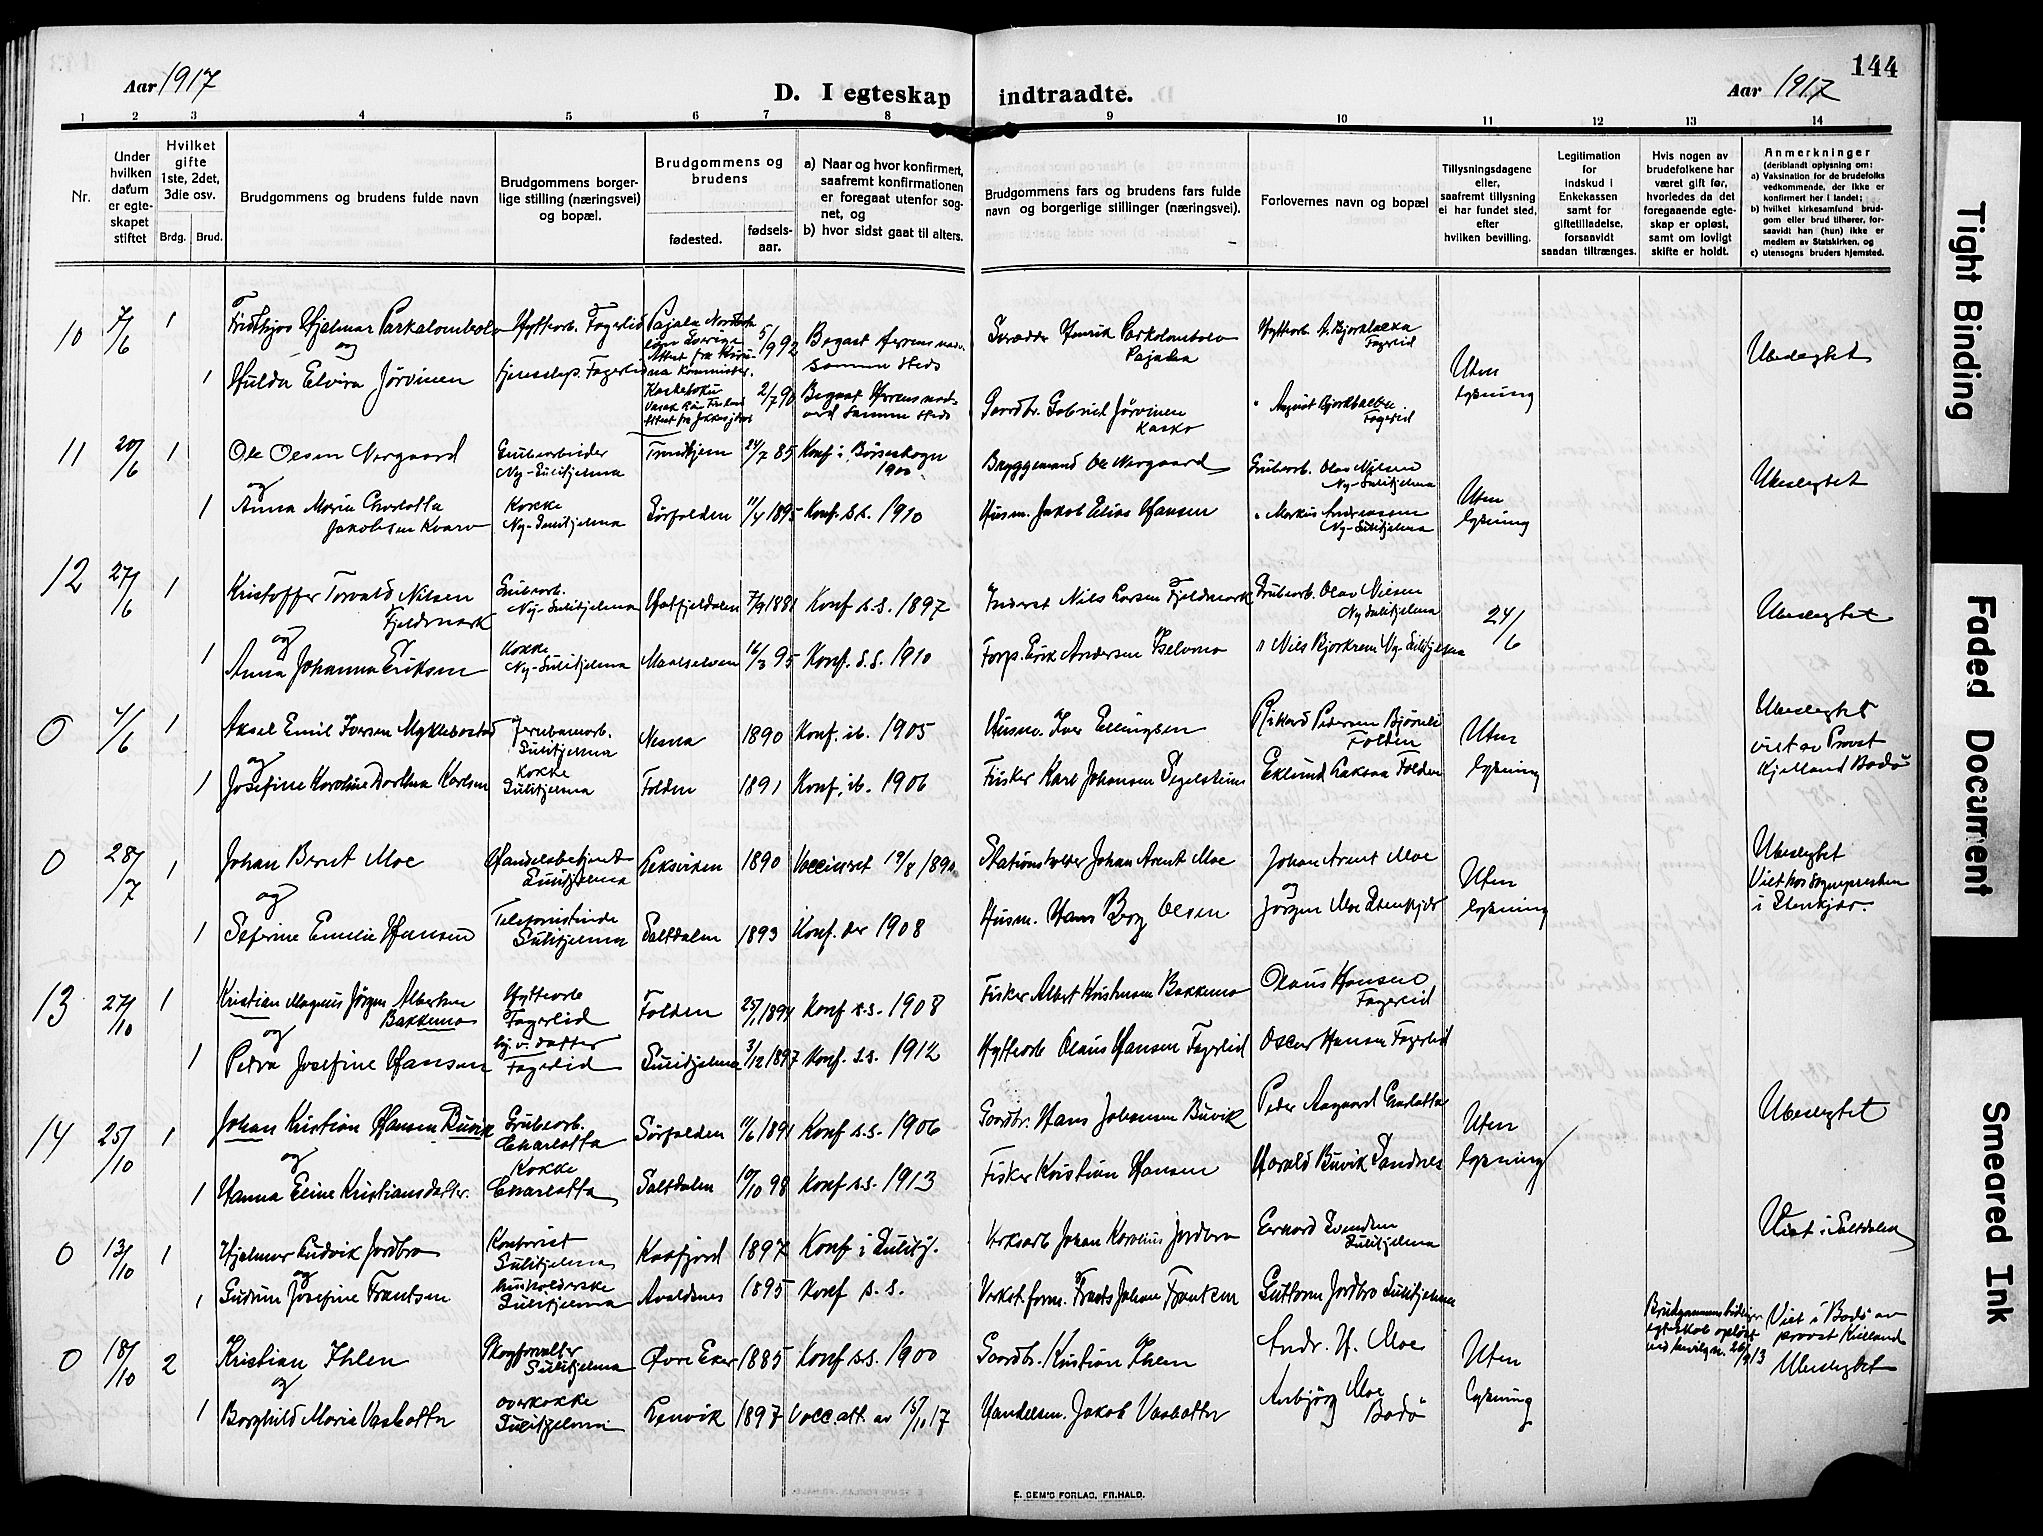 144
Aar 1917
D. I egteskap indtraadte.
Aar 1917
1 2 3 4 5 6 7 8 9 10 11 12 13 14
Nr.
Under hvilken datum er egteskapet stiftet
Hvilket gifte 1ste, 2det, 3die osv.
Brdg. Brud.
Brudgommens og brudens fulde navn
Brudgommens borgerlige stilling (næringsvei) og bopæl.
Brudgommens og brudens
fødested.
fødselsaar.
a) Naar og hvor konfirmert, saafremt konfirmationen er foregaat utenfor sognet, og
b) hvor sidst gaat til alters.
Brudgommens fars og brudens fars fulde navn og borgerlige stillinger (næringsvei).
Forlovernes navn og bopæl
Tillysningsdagene eller, saafremt tillysning ei har fundet sted, efter hvilken bevilling.
Legitimation for indskud i Enkekassen samt for giftetilladelse, forsaavidt saadan tiltrænges.
Hvis nogen av brudefolkene har været gift før, hvorledes da det foregaaende egteskap er opløst, samt om lovligt skifte er holdt.
Anmerkninger (deriblandt oplysning om:
a) Vaksination for de brudefolks vedkommende, der ikke er konfirmert her i landet;
b) hvilket kirkesamfund brudgom eller brud tilhører, forsaavidt han (hun) ikke er medlem av Statskirken, og
c) utensogns bruders hjemsted.
10 7/6 1 Fridthjov Hjalmar Parkalombolo Hytteorb. Fagerlid Pajala 5/9 92 Begaat Herrens nadv. samme steds Henrik Parkalombolo Pajala Hytteorb. A. Bjørkbakka Fagerlid Uten lysning Ubeslegtet
og
1 Hulda Elvira Jørvinen Fagerlid 2/7 90 Begaat Herrens nadv. samme steds Gaardbr. Gabriel Jørvinen Kasko " August Bjørkbakka Fagerlid
11 20/6 1 Ole Olsen Norgaard Grubearbeider Ny-Sulitjelma Trondhjem 24/7 85 Konf. i Børseskogn 1900 Bryggemand Ole Norgaard Grubeorb. Olav Nilsen Ny-Sulitjelma Uten lysning Ubeslegtet
og
1 Anna Maria Charlotta Jakobsen Kvarv Kokke Ny-Sulitjelma Sørfolden 11/4 1895 Konf. s.s. 1910 Husm. Jakob Elias Hansen " Markus Andreassen Ny-Sulitjelma
12 27/6 1 Kristoffer Torvald Nilsen Fjeldmark Grubeorb. Ny-Sulitjelma Hatfjeldalen 7/9 1881 Konf s.s. 1897 Inderst Nils Larsen Fjeldmark Grubeorb. Olav Nilsen Ny Sulitjelma 24/6 Ubeslegtet
og
1 Anna Johanna Eriksen Kokke Ny-Sulitjelma Maalselven 16/3 95 Konf. s.s. 1910 Forp. Erik Andersen " Nils Bjorkrem Ny-Sulitjelma
0 4/6 1 Aksel Emil Iversen Myklebostad Jernbanearb. Sulitjelma Nesna 1890 Konf. ib. 1905 Husm. Iver Ellingsen Rikard Pedersen Bjørnli Folden Uten lysning Ubeslegtet viet av Provst Kjelland Bodø
og
1 Josefine Karoline Dorthea Karlsen Kokke Sulitjelma Folden 1891 Konf. ib. 1906 Fisker Karl Johansen Eklund Laksaa Folden
0 28/7 1 Johan Bernt Moe Handelsbetjent Sulitjelma Leksviken 1890 Vaccineret Stationsholder Johan Arent Moe Johan Arent Moe Uten lysning Ubeslegtet Viet hos sognepresten i Stenkjær.
og
1 Seferine Emelie Hansen Telefonistinde Sulitjelma Saltdalen 1893 Konf. der 1908 Husm. Hans Berg Olsen og Jørgen Moe Stenkjær
13 27/10 1 Kristian Magnus Jørgen Albertsen Bakkemo Hytteorb Fagerlid Folden 25/1 1894 Konf s.s. 1908 Fisker Albert Kristensen Bakkemo Olaus Hansen Fagerlid
og
1 Petra Josefine Hansen hj. v. datter Fagerlid Sulitjelma 3/12 1897 Konf. s.s. 1912 Hytteorb Olaus Hansen Fagerlid Oscar Hansen Fagerlid
14 25/10 1 Johan Kristian Hansen Buvik Grubeorb. Charlotta Sørfolden 11/6 1891 Konf s.s. 1906 Gaardbr. Hans Johansen Buvik Peder Aagaard Charlotta Uten lysning Ubeslegtet
og
1 Hanna Eline Kristiansdatter. Kokke Charlotta Saltdalen 19/10 98 Konf s.s. 1913 Fisker Kristian Hansen Harald Buvik Sandnes
0 13/10 1 Hjalmar Ludvik Jordbro Kontorist Sulitjelma Kaafjord 1897 Konf i Sulitj. Verksarb Johan Kornelius Jordbro Erhard Svendsen Sulitjelma Viet i Saltdalen
og
1 Gudrun Josefine Frantsen husholderske Sulitjelma Avaldsnes 1895 Konf s.s. Verkst. form. Frants Johan Frantzen Guttorm Jordbro Sulitjelma
0 18/10 2 Kristian Ihlen Skogforvalter Sulitjelma Øvre Eker 1885 Konf s.s. 1900 Gaardbr. Kristian Ihlen Andr. H. Moe Uten lysning Brudgommens tidligere egteskab opløst ved bevilgn. Viet i Bodø av provst Kielland Ubeslegtet
og
1 Borghild Marie Vasbotten overkokke Sulitjelma Lenvik 1897 Vacc.att. av 15/10 17 Handelsm. Jakob Vasbotten Anbjørg Moe Bodø
E. SEM'S FORLAG, FR.HALD.
Tight Binding
Faded Document
Smeared Ink